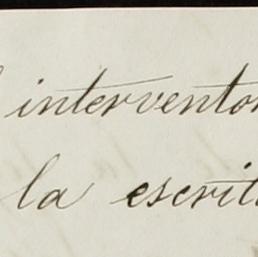 interventor
la escrit